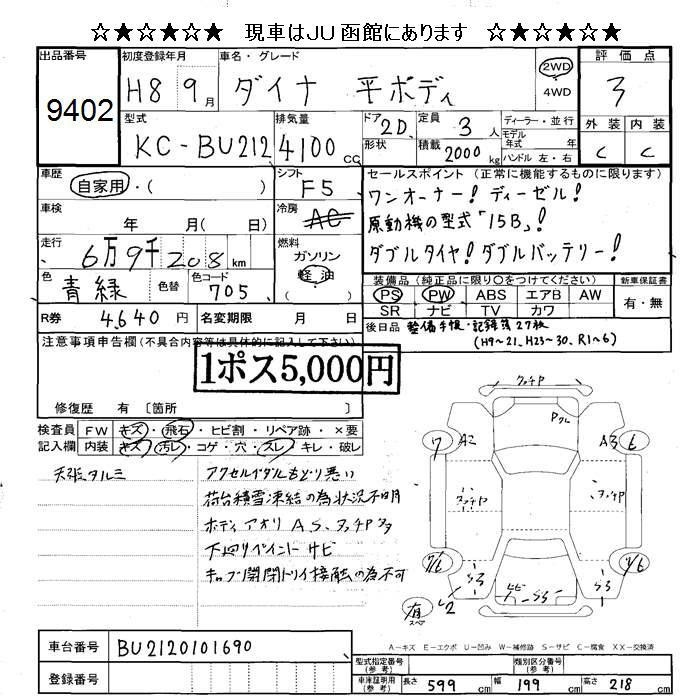 ☆★☆★☆★ 現車はJU函館にあります ☆★☆★☆★
出品番号 初度登録年月 車名・グレード 2WD 4WD 評価点
9402 H8 9月 ダイナ 平ボディ 3
型式 排気量 ドア 定員 ディーラー・並行 外装 内装
KC-BU212 4100cc 2D 3人 モデル年式 年式
形状 積載 2000kg ハンドル 左・右 C C
車歴 シフト セールスポイント(正常に機能するものに限ります)
自家用・( ) F5 ワンオーナー!ディーゼル!
車検 冷房 原動機の型式「15B」!
年 月( 日) AC ダブルタイヤ!ダブルバッテリー!
走行 燃料
6万9千208km ガソリン
色 色替 色コード 軽油 装備品(純正品に限り○をつけてください) 新車保証書
青緑 705 ( ) PS PW ABS エアB AW 有・無
SR ナビ TV カワ
R券 4,640円 名変期限 月 日 後日品 整備手帳・記録簿27枚
(H9~21、H23~30、R1~6)
注意事項申告欄(不具合内容等は具体的に記入して下さい)
1ポス5,000円
修復歴 有〔箇所 〕
検査員 FW キズ・飛石・ヒビ割・リペア跡・×要
記入欄 内装 キズ・汚レ・コゲ・穴・スレ・キレ・破レ
天張タルミ アクセルペダルもどり悪い
荷台積雪凍結の為状況不明
ボディアオリ AS、タッチP多
下回りペイント サビ
キャブ開閉トリイ接触の為不可
タッチP
Pクレ
7 A2 A3 6
タッチP タッチP
7/6 7/6
S3 ヒビ S3 S3
有 スペア
A-キズ E-エクボ U-凹み W-補修跡 S-サビ C-腐食 XX-交換済
車台番号 BU2120101690
登録番号
型式指定番号(参考) 類別区分番号(参考)
車庫証明用(参考) 長さ 599cm 幅 199cm 高さ 218cm